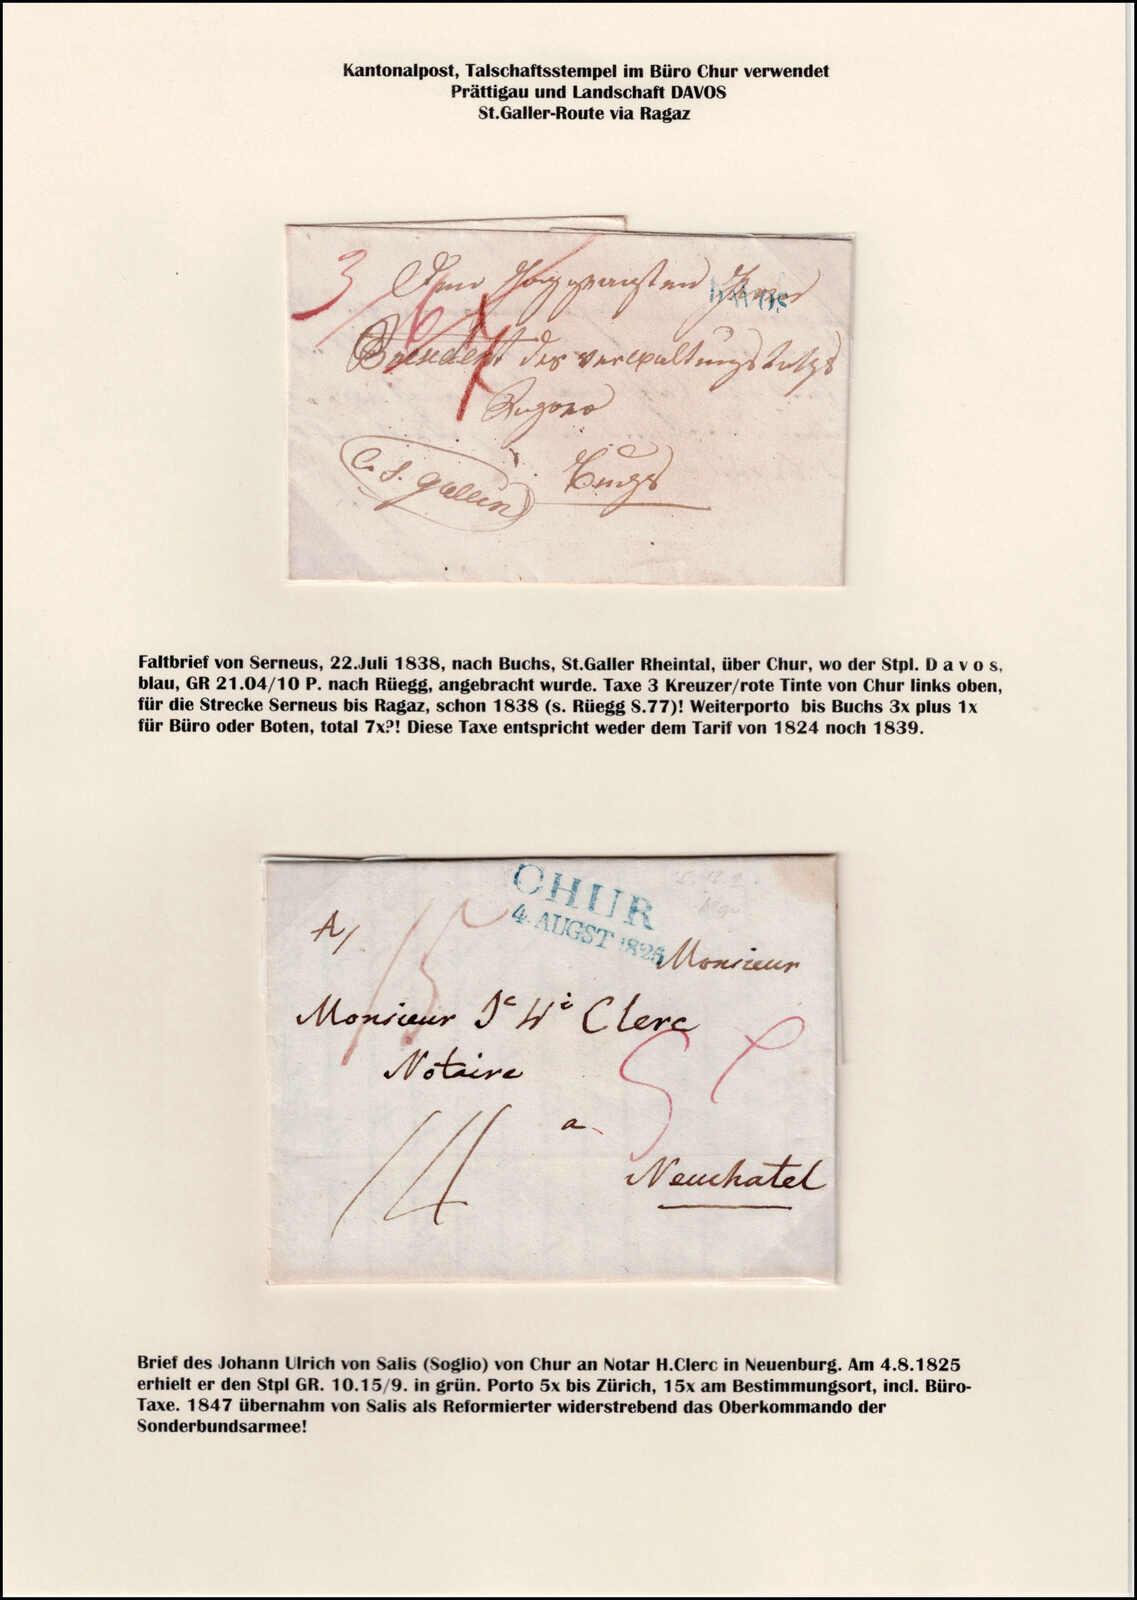 Kantonalpost, Talschaftsstempel im Büro Chur verwendet
Prättigau und Landschaft DAVOS
St.Galler-Route via Ragaz
3
DAVOS
7
Faltbrief von Serneus, 22.Juli 1838, nach Buchs, St.Galler Rheintal, über Chur, wo der Stpl. D a v o s,
blau, GR 21.04/10 P. nach Rüegg, angebracht wurde. Taxe 3 Kreuzer/rote Tinte von Chur links oben,
für die Strecke Serneus bis Ragaz, schon 1838 (s. Rüegg S.77)! Weiterporto bis Buchs 3x plus 1x
für Büro oder Boten, total 7x?! Diese Taxe entspricht weder dem Tarif von 1824 noch 1839.
CHUR
4. AUGST 1825
A/
15
Monsieur
Monsieur Jc Hi Clerc
Notaire
a
14
Neuchatel
Brief des Johann Ulrich von Salis (Soglio) von Chur an Notar H.Clerc in Neuenburg. Am 4.8.1825
erhielt er den Stpl GR. 10.15/9. in grün. Porto 5x bis Zürich, 15x am Bestimmungsort, incl. Büro-
Taxe. 1847 übernahm von Salis als Reformierter widerstrebend das Oberkommando der
Sonderbundsarmee!